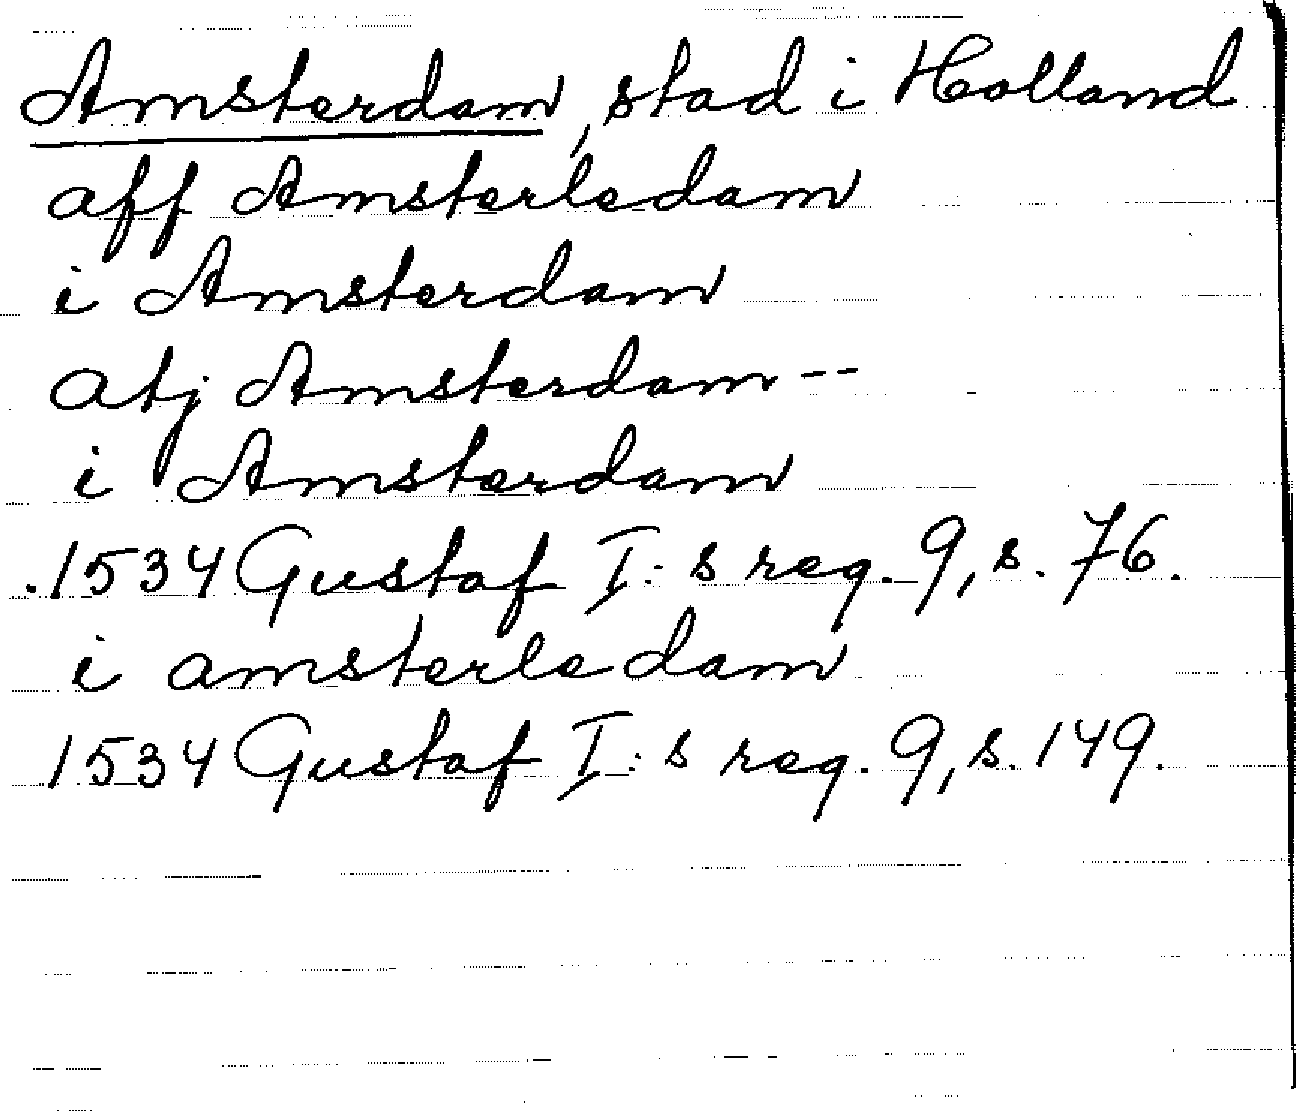 Amsterdam, stad i Holland
aff Amsterledam
i Amsterdam
atj Amsterdam --
i Amsterdam
1534 Gustaf I:s reg. 9, s. 76.
i amsterledam
1534 Gustaf I:s reg. 9, s. 149.